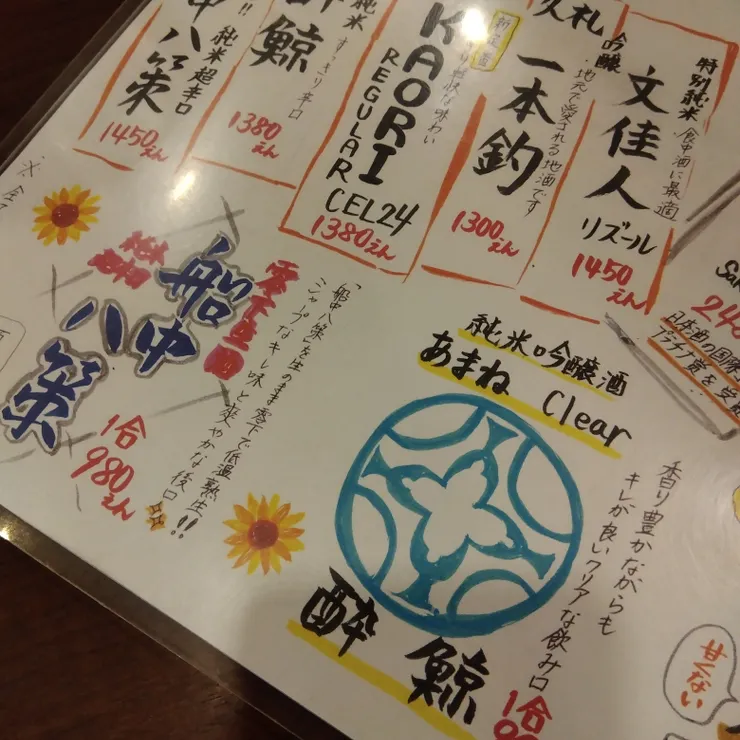 特別純米
食中酒に最適
文佳人
リズール
1450えん
久礼
吟醸
地元で愛される地酒です
一本釣
1300えん
KAORI
REGULAR
CEL24
1380えん
純米
すっきり辛口
酔鯨
1380えん
純米超辛口
中八策
1450えん
日本酒の国際
プラチナ賞を受
純米吟醸酒
あまね Clear
香り豊かながらも
キレが良いクリアな飲み口
酔鯨
1合
甘くない
船中八策
「船中八策」を生のまま零下で低温熟生!!
シャープなキレ味と爽やかな後口
1合
980えん